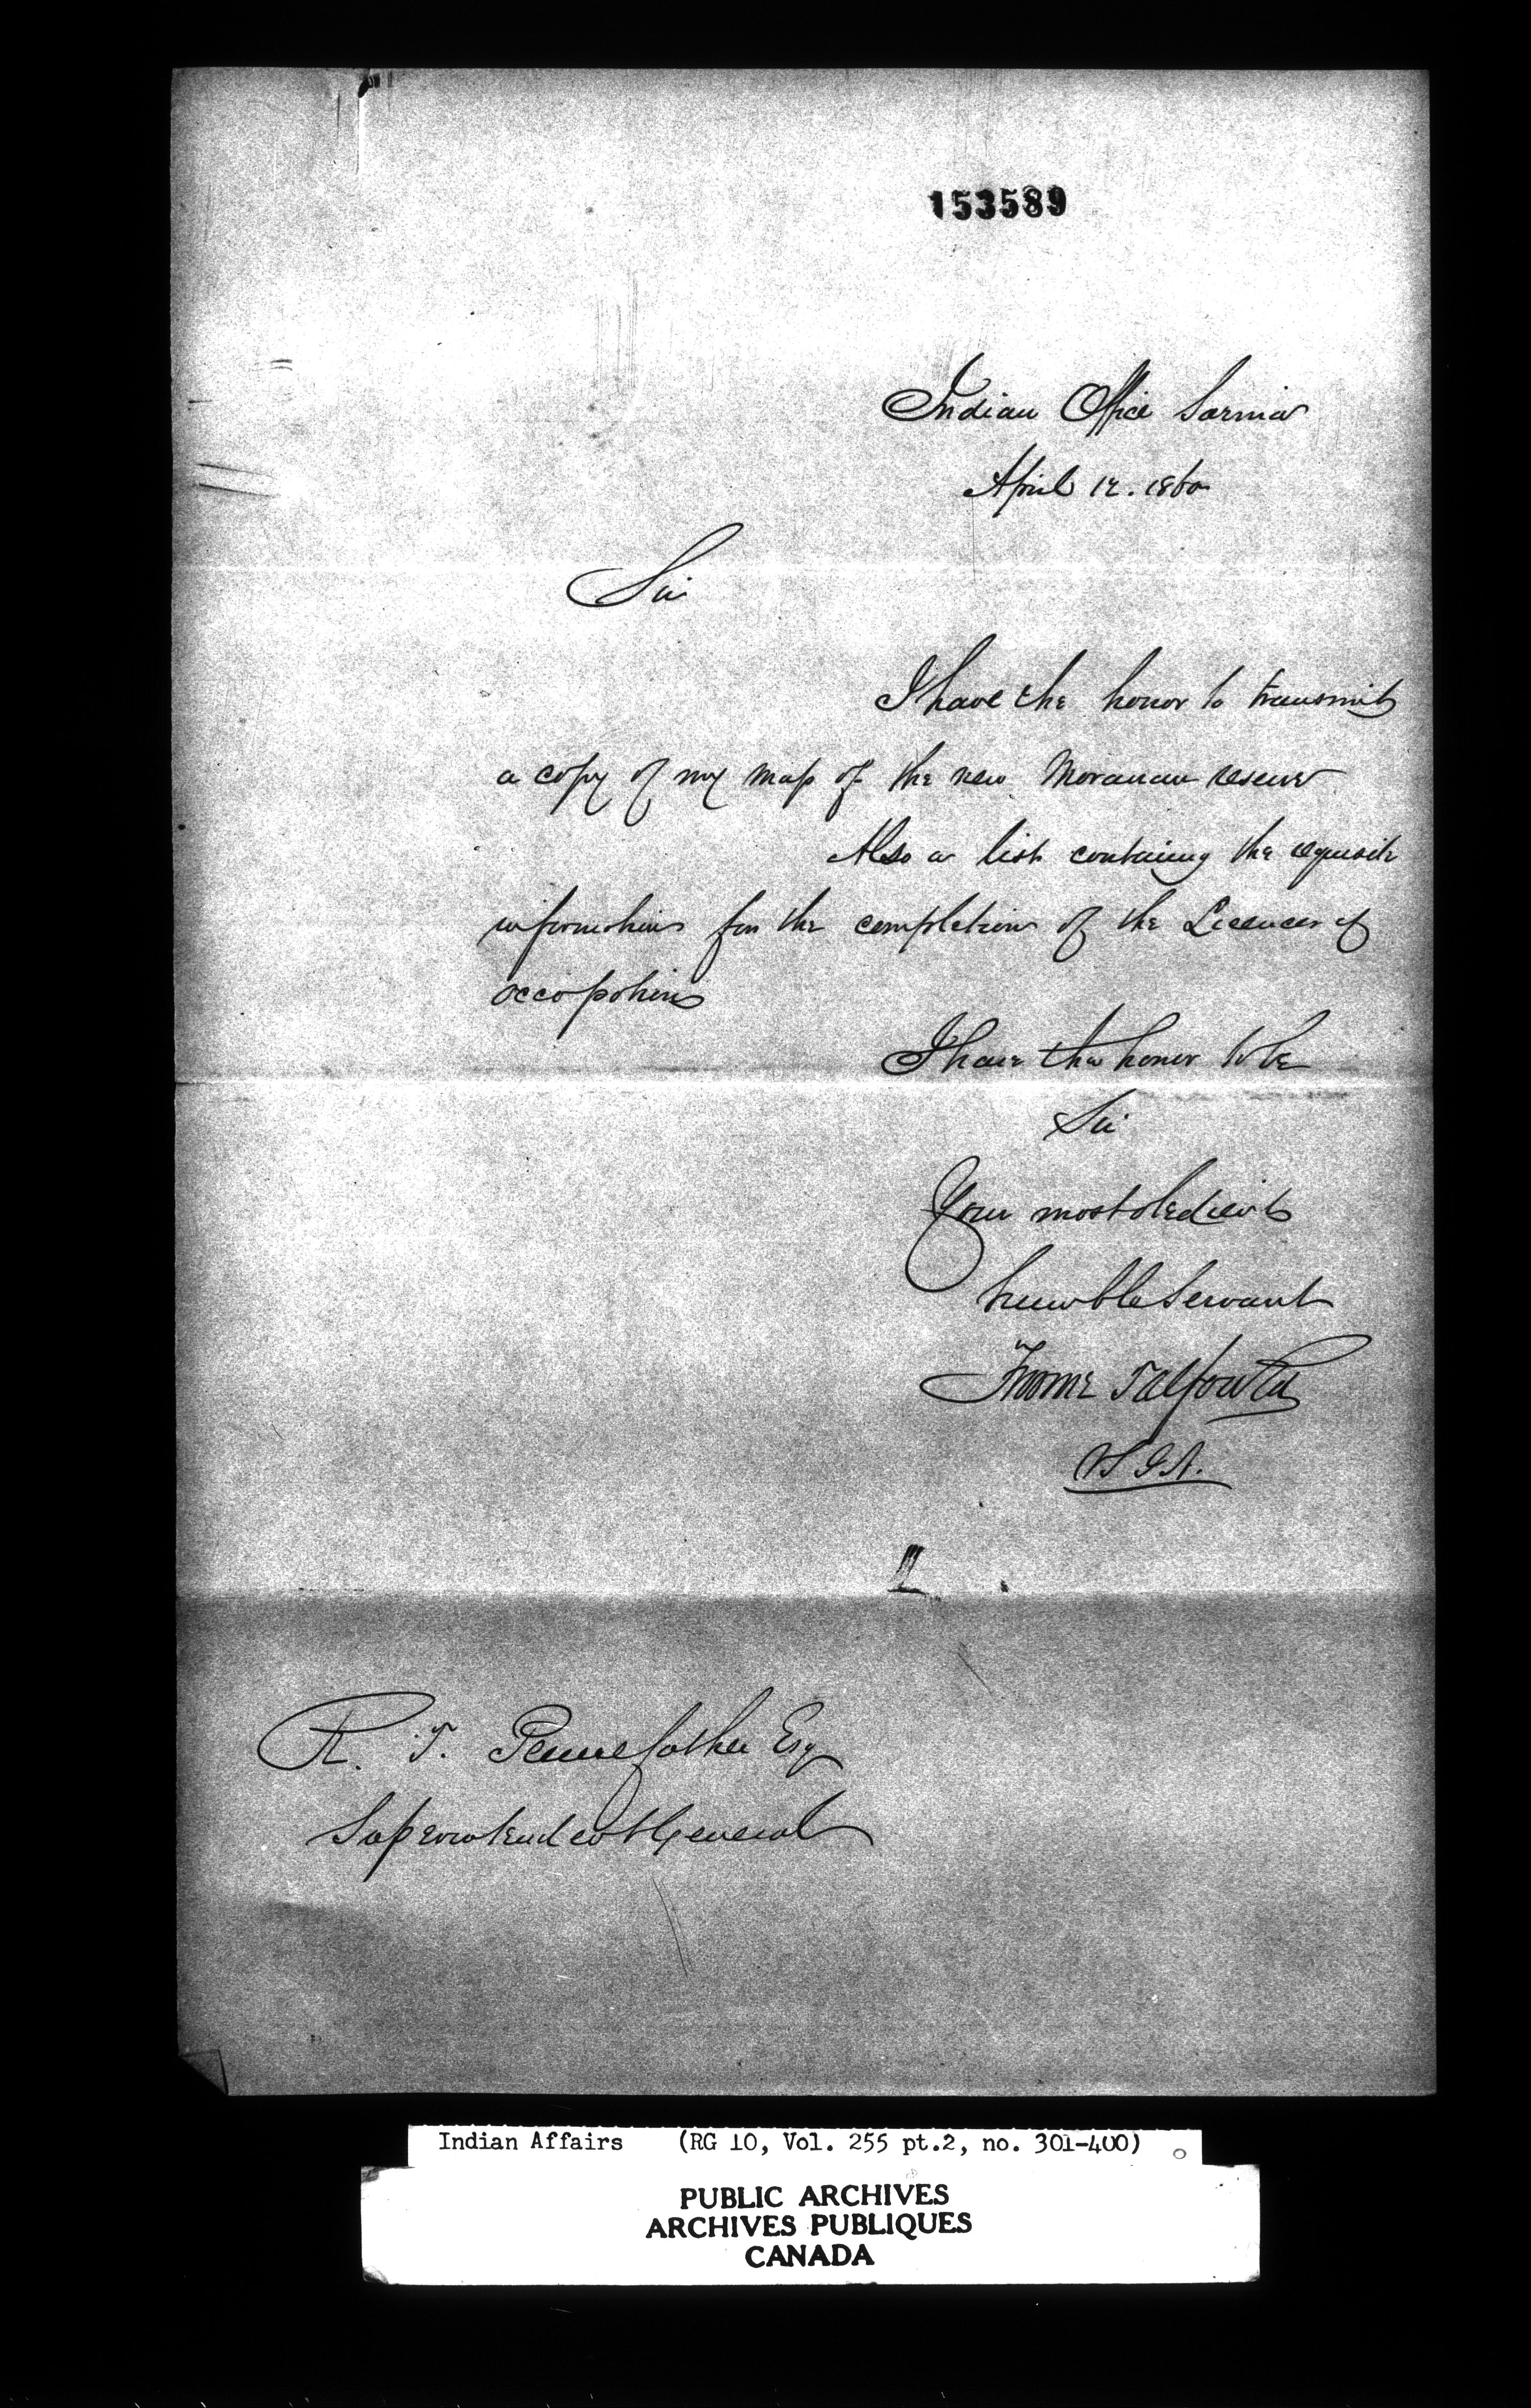 153589
Indian Office Sarnia
April 12. 1860
Sir
I have the honor to transmit
a copy of my map of the new Moravian reserve
Also a list containing the requisite
information for the completion of the Licences of
occupation
I have the honor to be
Sir
Your most obedient
humble servant
Froome Talfourd
VSIA.
R. T. Pennefather Esq
Superintendent General
Indian Affairs (RG 10, Vol. 255 pt.2, no. 301-400)
PUBLIC ARCHIVES
ARCHIVES PUBLIQUES
CANADA